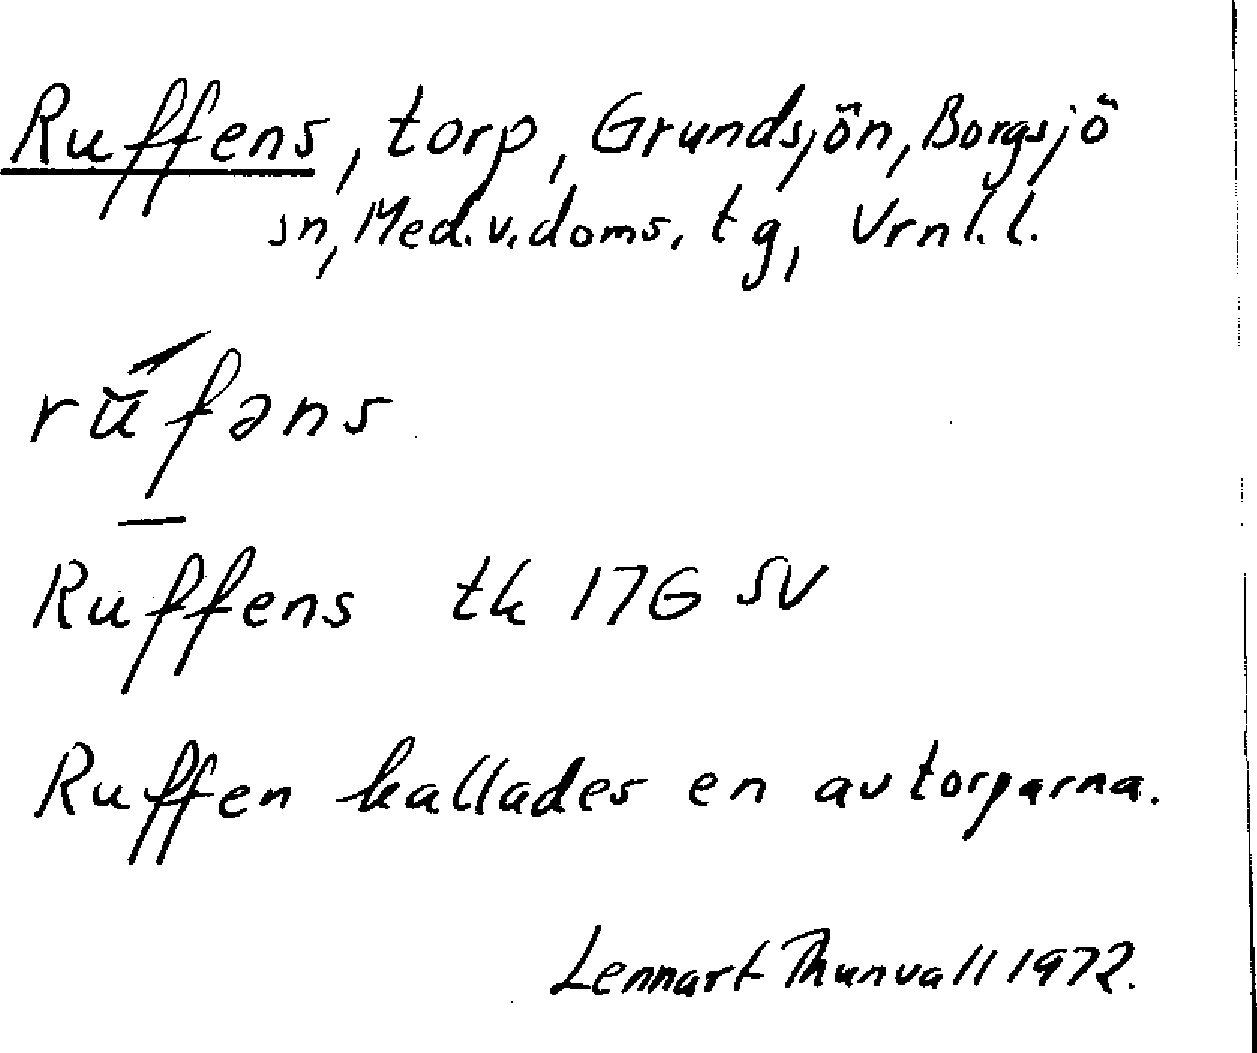 Ruffens, torp, Grundsjön, Borgsjö
sn, Med.v.doms. tg, Vrnl.l.
rŭ́fəns
Ruffens tk 17G SV
Ruffen kallades en av torparna.
Lennart Thunvall 1972.